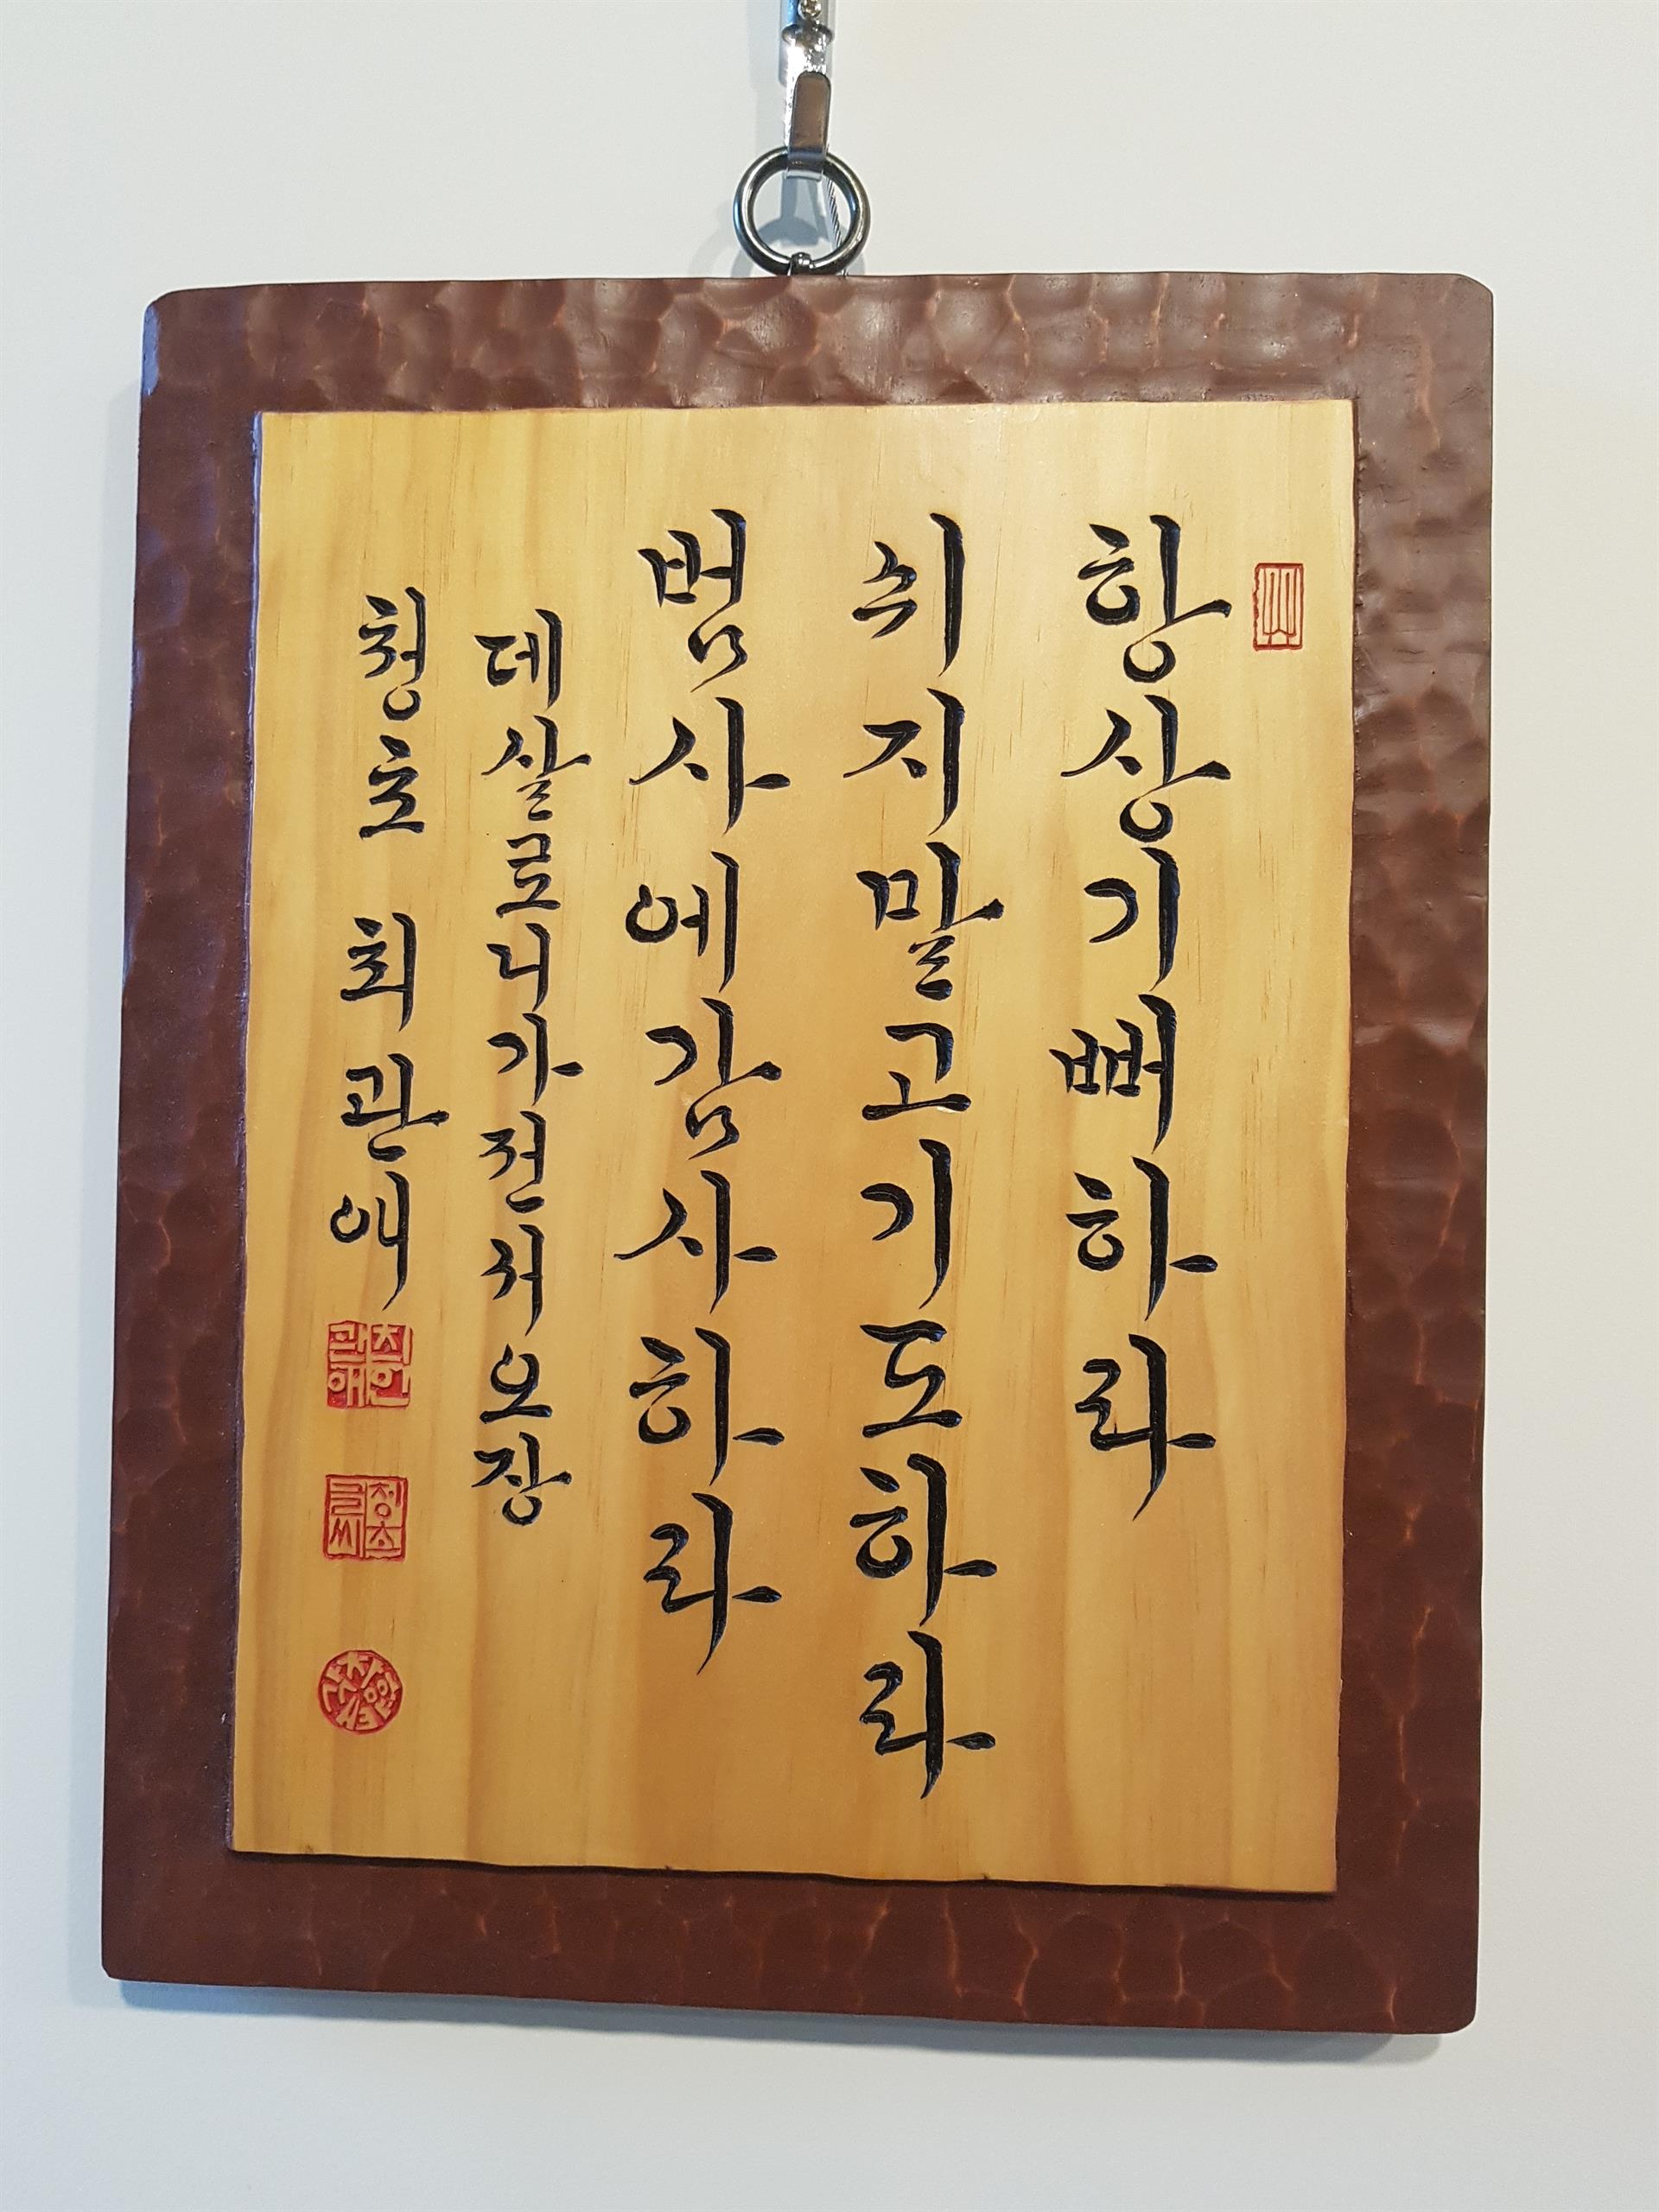 항상기뻐하라
쉬지말고기도하라
범사에감사하라
데살로니가전서오장
청초 최관애
최한
관애
청초
글씨